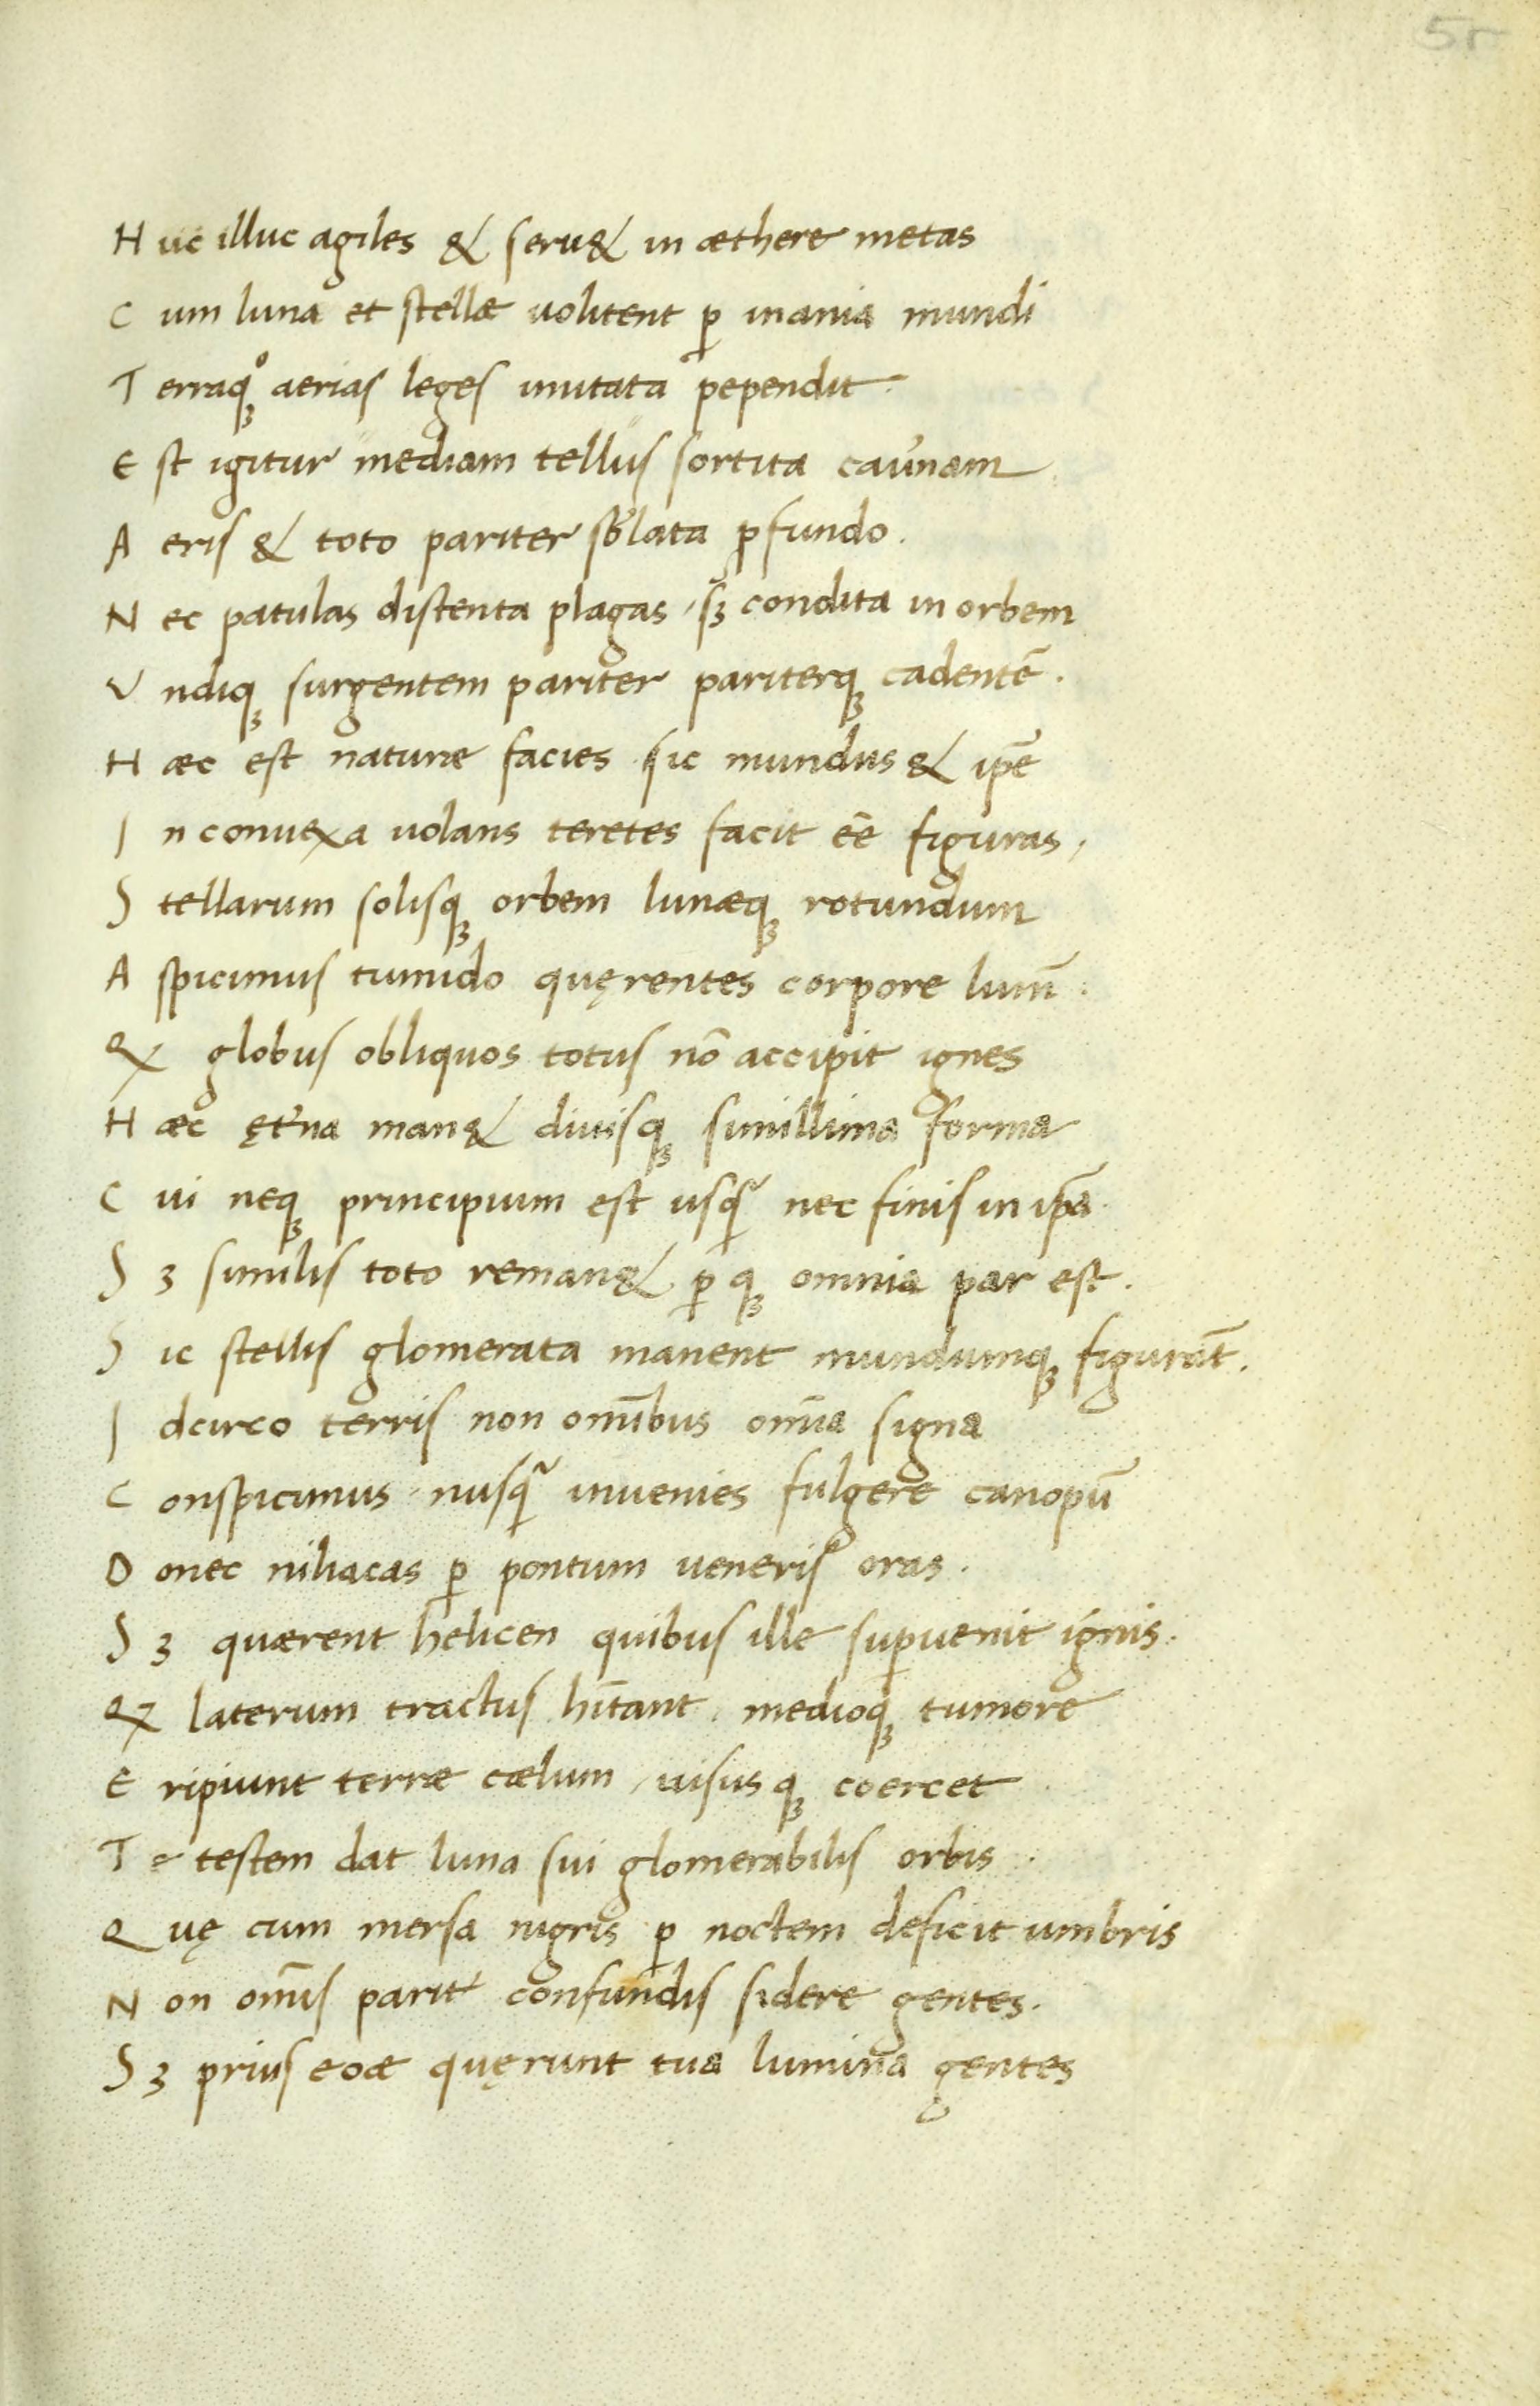 5r
H uc illuc agiles & seru& in æthere metas
C um luna et stellæ uolitent p̱ inania mundi
T erraqꝫ aerias leges imitata pependit.
E st igitur mediam tellus sortita cau̓nam
A eris & toto pariter sb̓lata ꝓfundo.
N ec patulas distenta plagas, sꝫ condita in orbem
V ndiqꝫ surgentem pariter pariterqꝫ cadentē.
H æc est naturæ facies sic mundus & ip̄e
I n conuexa uolans teretes facit ēē figuras,
S tellarum solisqꝫ orbem lunæqꝫ rotundum
A spicimus tumido quęrentes corpore lum̄:
Q globus obliquos totus nō accipit ignes
H æc ęt̓na man& diuisqꝫ simillima forma
C ui neqꝫ principium est usq̃ nec finis in ip̄a.
S ꝫ similis toto reman& ꝑ qꝫ omnia par est.
S ic stellis glomerata manent mundumqꝫ figurāt.
I dcirco terris non om̄ibus om̄ia signa
C onspicimus. nusq̃ inuenies fulgere canopū
D onec niliacas ꝑ pontum ueneris oras.
S ꝫ quærent helicen quibus ille suꝑuenit ignis.
Q laterum tractus hītant. medioqꝫ tumore
E ripiunt terræ cælum, uisus qꝫ coercet
T e testem dat luna sui glomerabilis orbis.
Q uę cum mersa nigris ꝑ noctem deficit umbris
N on om̄is parit̓ confundis sidere gentes.
S ꝫ prius eoæ quęrunt tua lumina gentes